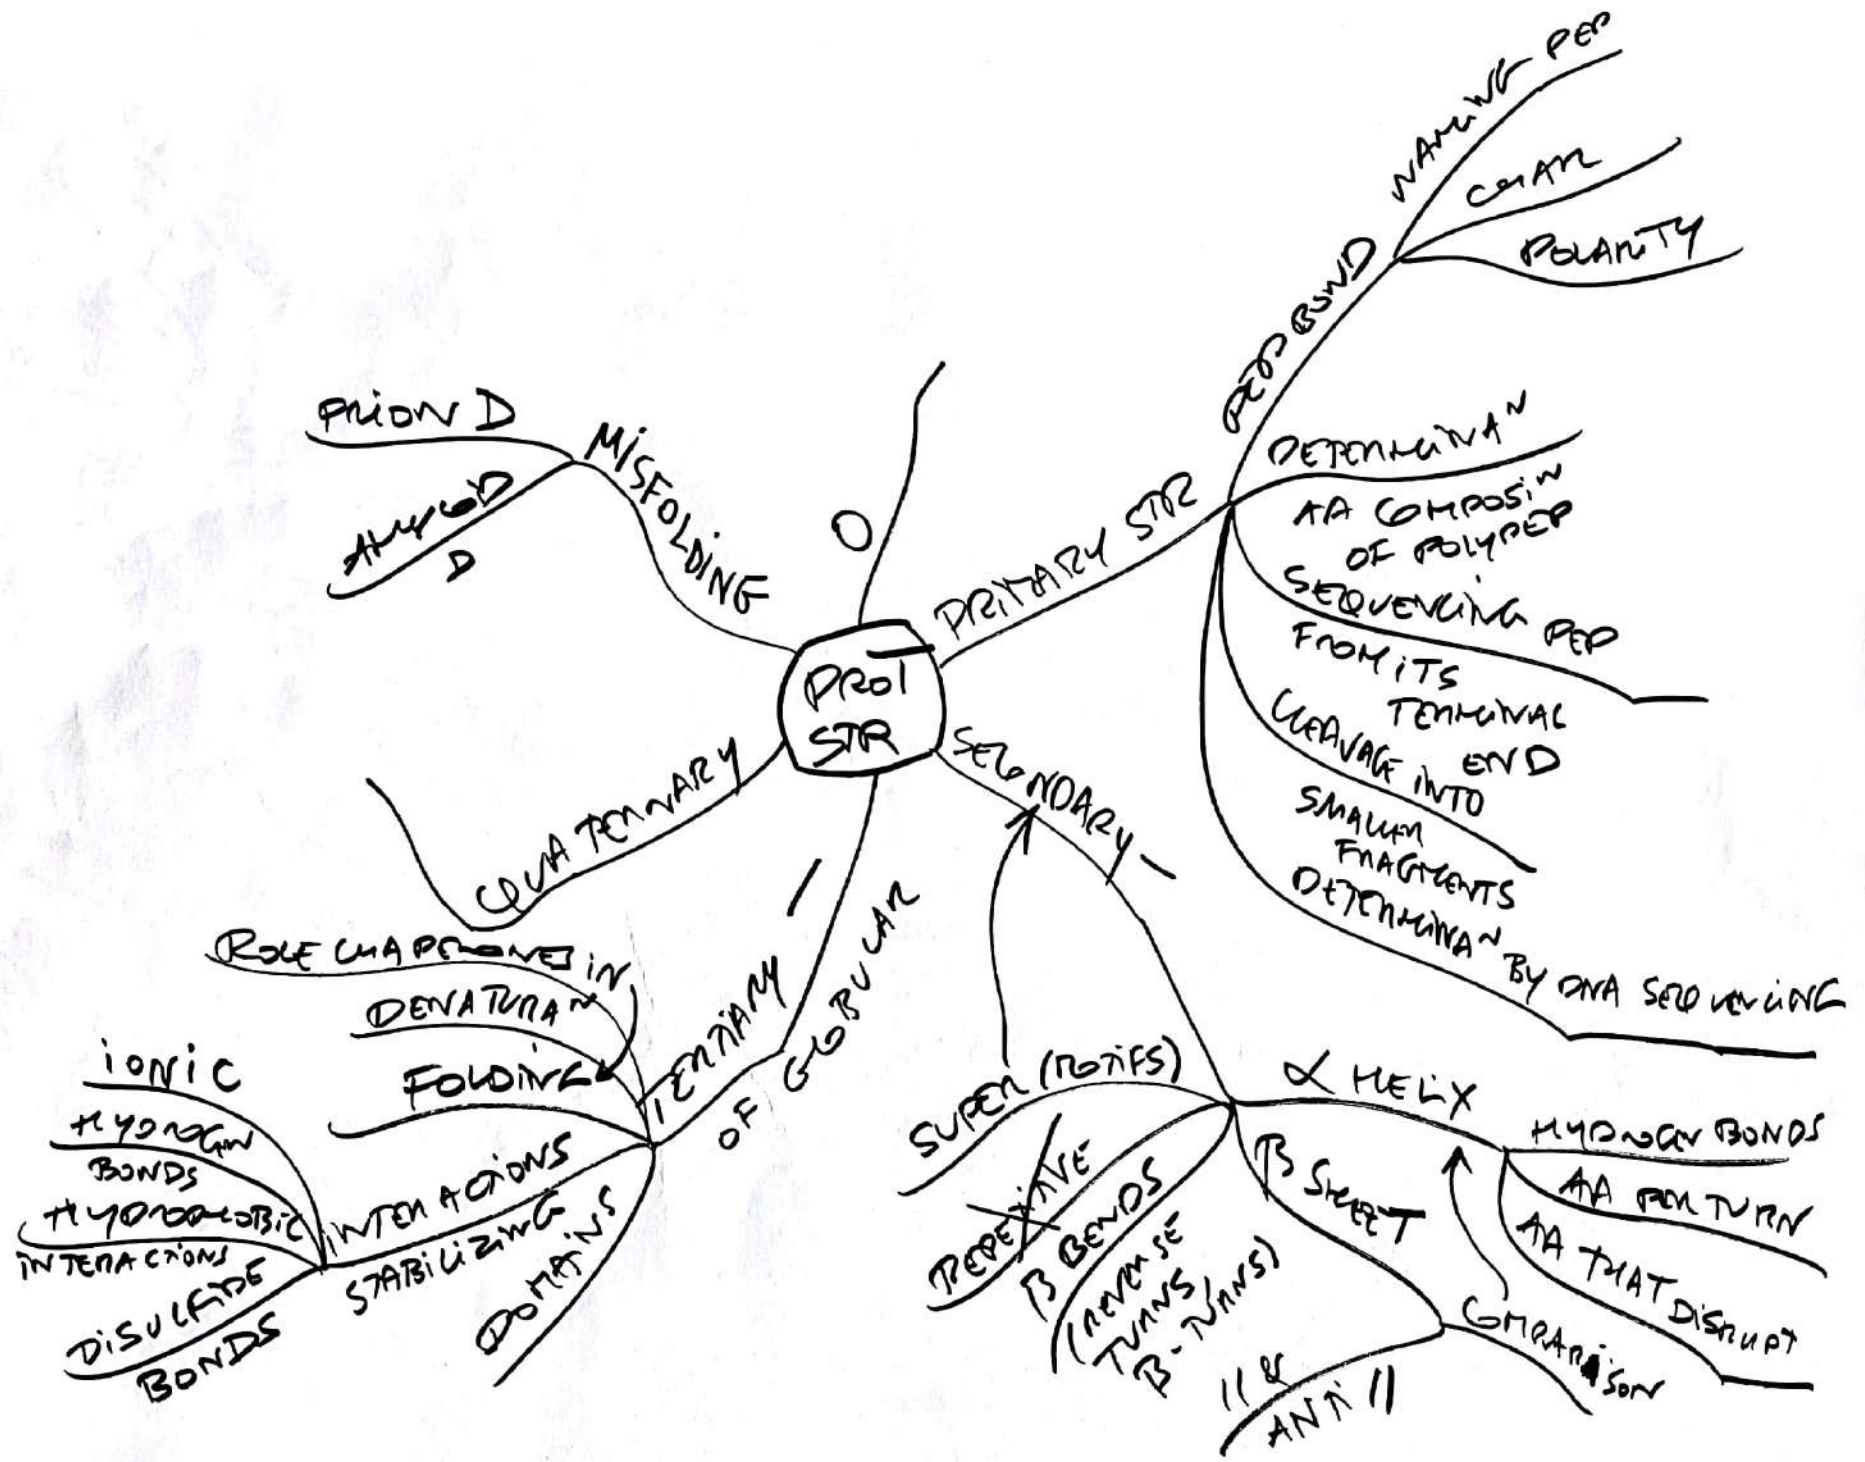 PROT
STR
O
PRIMARY STR
PEP BOND
NAMING PEP
CHAR
POLARITY
DETERMINAN
AA COMPOSIN
OF POLYPEP
SEQUENCING PEP
FROM ITS
TERMINAL
END
CLEAVAGE INTO
SMALLER
FRAGMENTS
DETERMINAN BY DNA SEQUENCING
SECONDARY -
α HELIX
HYDROGEN BONDS
AA PER TURN
AA THAT DISRUPT
β SHEET
COMPARISON
|| &
ANTI ||
β BENDS
(REVERSE
TURNS,
β-TURNS)
REPETITIVE
SUPER (MOTIFS)
TERTIARY -
OF GLOBULAR
DOMAINS
INTERACTIONS
STABILIZING
IONIC
HYDROGEN
BONDS
HYDROPHOBIC
INTERACTIONS
DISULFIDE
BONDS
FOLDING
DENATURAN
ROLE CHAPERONES IN
QUATERNARY
MISFOLDING
PRION D
AMYLOID
D